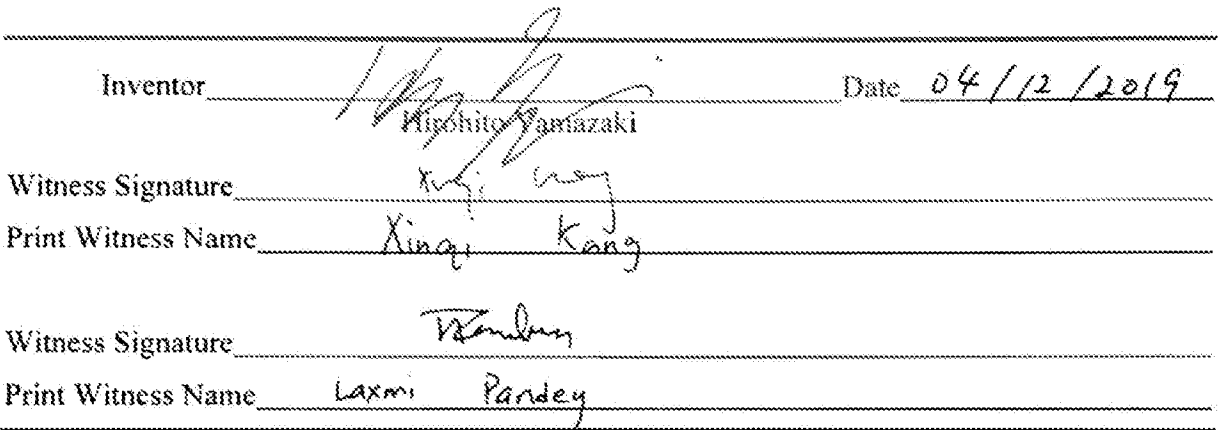 Inventor Date 04/12/2019
Hirohito Yamazaki
Witness Signature
Print Witness Name Xinqi Kang
Witness Signature
Print Witness Name Laxmi Pandey